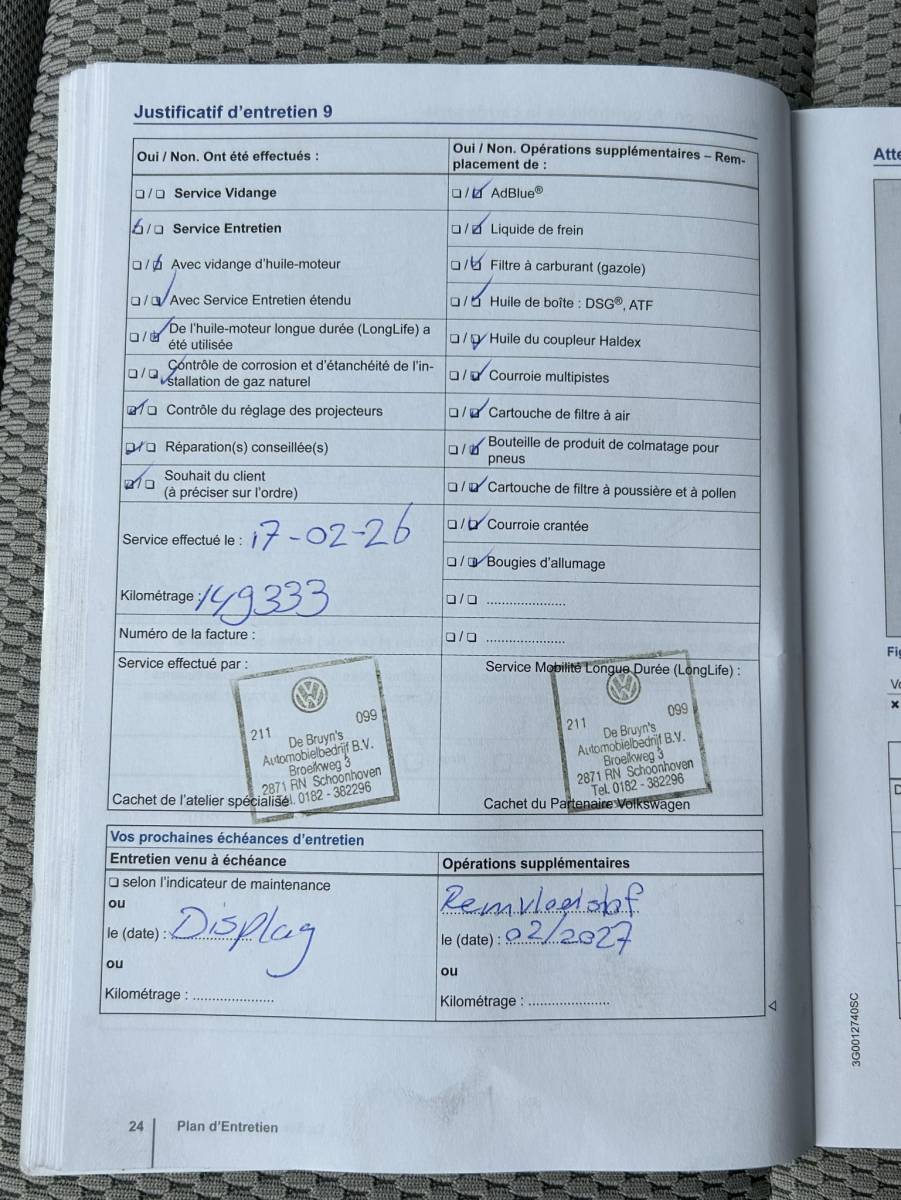 Justificatif d'entretien 9
Oui / Non. Ont été effectués :
❑ / ❑ Service Vidange
❑ / ❑ Service Entretien
❑ / ❑ Avec vidange d'huile-moteur
❑ / ❑ Avec Service Entretien étendu
❑ / ❑ De l'huile-moteur longue durée (LongLife) a
été utilisée
❑ / ❑ Contrôle de corrosion et d'étanchéité de l'in-
stallation de gaz naturel
❑ / ❑ Contrôle du réglage des projecteurs
❑ / ❑ Réparation(s) conseillée(s)
❑ / ❑ Souhait du client
(à préciser sur l'ordre)
Service effectué le : 17-02-26
Kilométrage : 149333
Numéro de la facture :
Service effectué par :
211 099
De Bruyn's
Automobielbedrijf B.V.
Broeikweg 3
2871 RN Schoonhoven
Tel. 0182 - 382296
Cachet de l'atelier spécialisé
Oui / Non. Opérations supplémentaires – Rem-
placement de :
❑ / ❑ AdBlue®
❑ / ❑ Liquide de frein
❑ / ❑ Filtre à carburant (gazole)
❑ / ❑ Huile de boîte : DSG®, ATF
❑ / ❑ Huile du coupleur Haldex
❑ / ❑ Courroie multipistes
❑ / ❑ Cartouche de filtre à air
❑ / ❑ Bouteille de produit de colmatage pour
pneus
❑ / ❑ Cartouche de filtre à poussière et à pollen
❑ / ❑ Courroie crantée
❑ / ❑ Bougies d'allumage
❑ / ❑ .....................
❑ / ❑ .....................
Service Mobilité Longue Durée (LongLife) :
211 099
De Bruyn's
Automobielbedrijf B.V.
Broeikweg 3
2871 RN Schoonhoven
Tel. 0182 - 382296
Cachet du Partenaire Volkswagen
Vos prochaines échéances d'entretien
Entretien venu à échéance
❑ selon l'indicateur de maintenance
ou
le (date) : Display
ou
Kilométrage : .....................
Opérations supplémentaires
Remvloeistof
le (date) : 02/2027
ou
Kilométrage : .....................
24 Plan d'Entretien
3G0012740SC